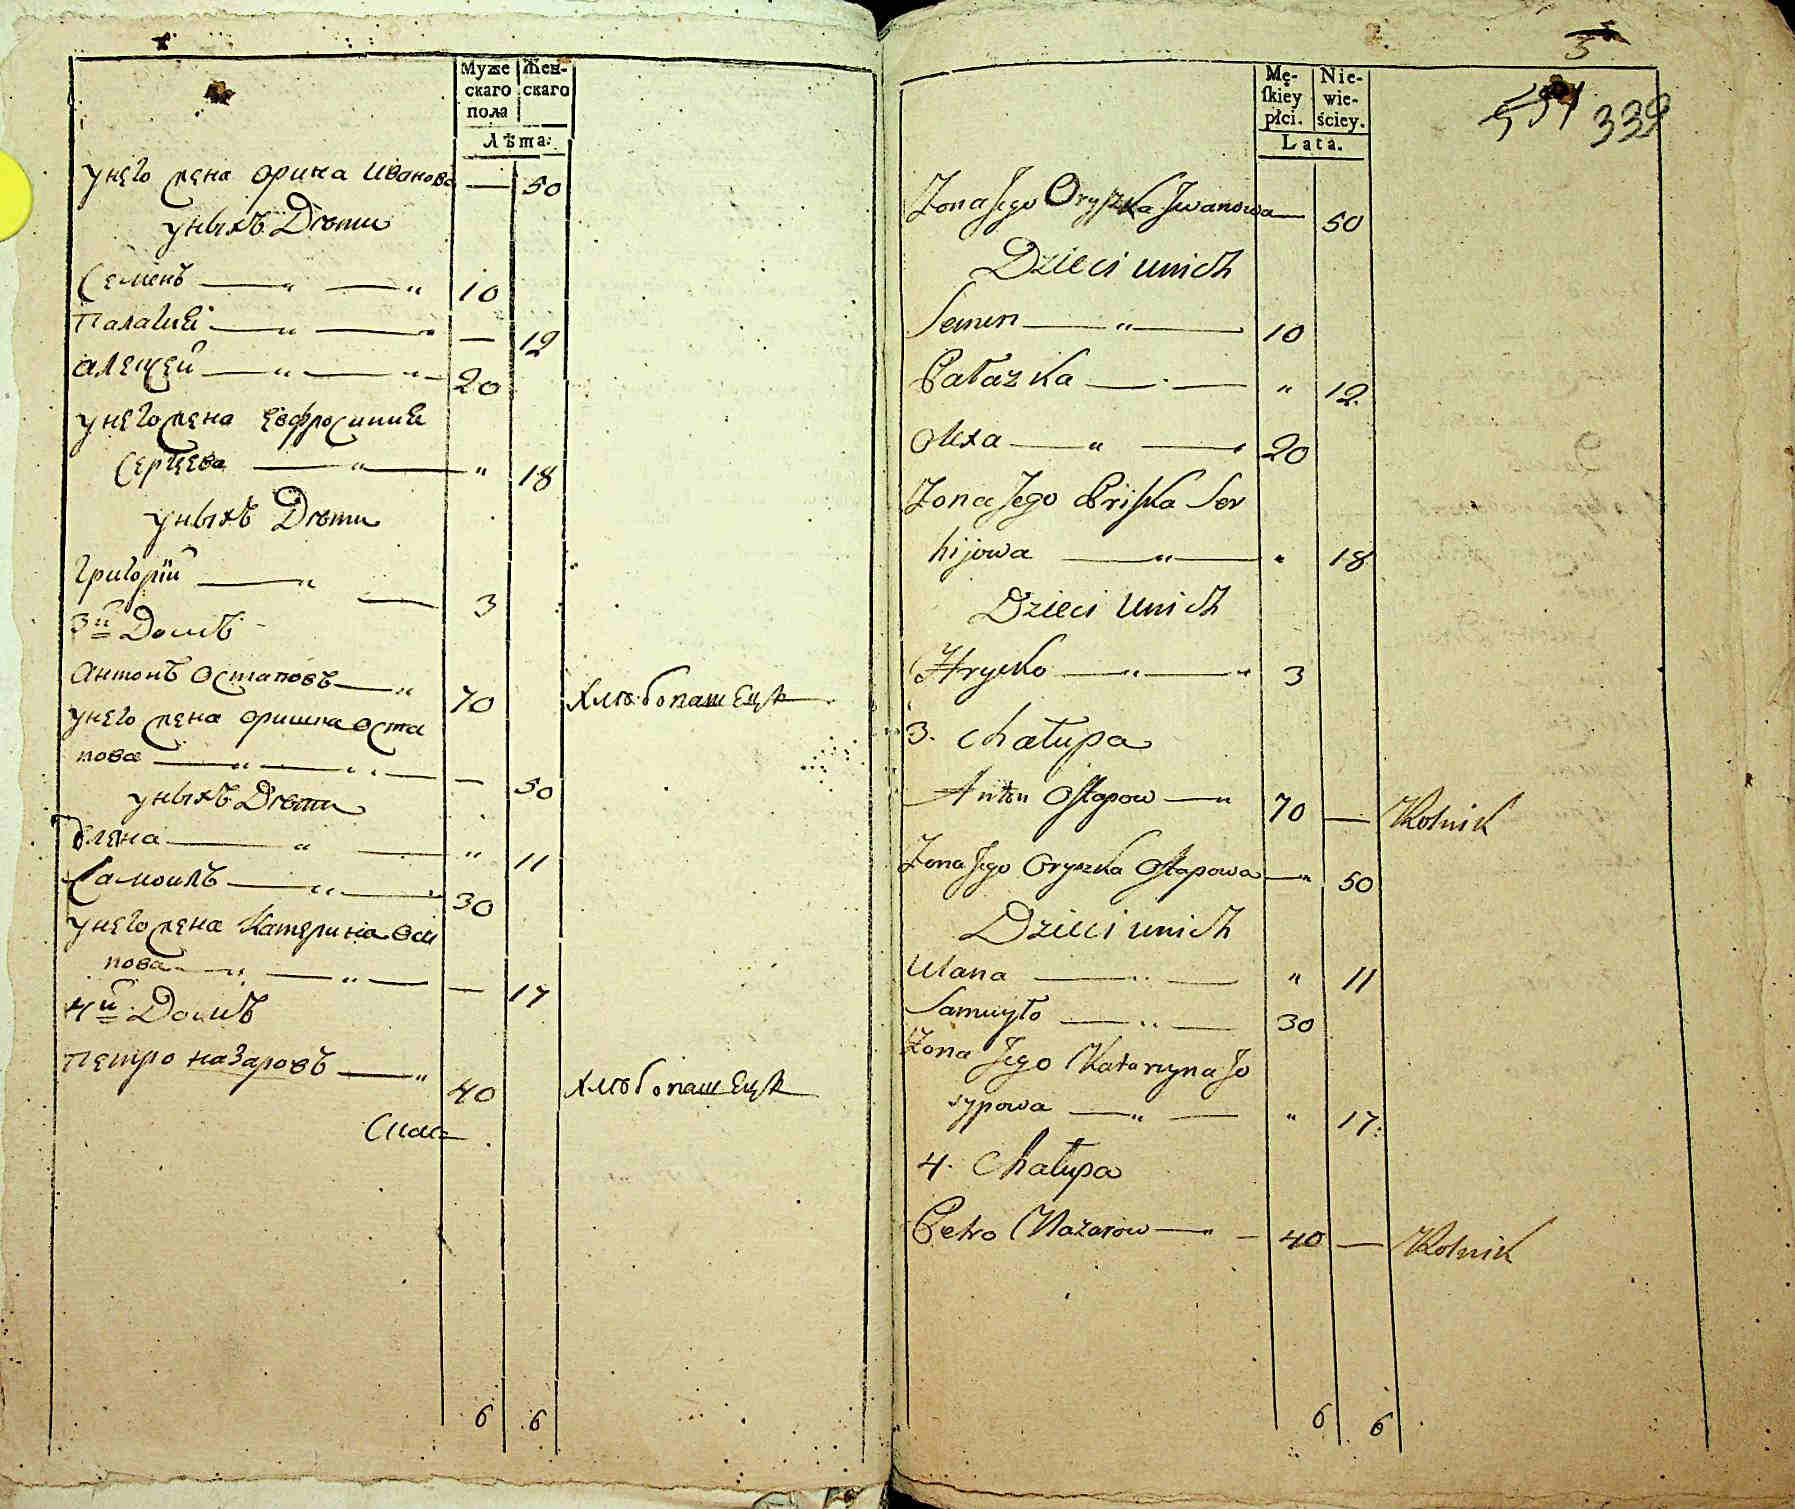 Муже
скаго
пола
Жен-
скаго
Лѣта:
унего жена орина Иванова — 50
унихъ Дѣти
Семенъ — „ — „ 10
Палагия — „ — „ — 12
алексей — „ — „ 20
унего жена Евфросиния
Сергеева — „ — „ 18
унихъ Дѣти
григорiй — „ — 3
3й Домъ
антонъ Остаповъ — „ 70 хлѣбопашецъ
унего жена оришка Оста
пова — „ — „ — — 50
унихъ Дѣти
Елена — „ — „ 11
Самоилъ — „ — 30
унего жена Катерина Оси
пова — „ — „ — — 17
4й Домъ
Петро назаровъ — „ 40 хлѣбопашецъ
6 6
5
339
Mę-
ſkiey
płci.
Nie-
wie-
ściey.
Lata.
Zona Jego Oryszka Jwanowa — 50
Dzieci unich
Semen — „ — 10
Pałazka — „ — „ 12
Olexa — „ — 20
Zona Jego Priska Ser
hijowa — „ — „ 18
Dzieci Unich
Hrycko — „ — „ 3
3. Chałupa
Anton Ostapow — „ 70 — Rolnik
Zona Jego Oryszka Ostapowa — „ 50
Dzieci unich
Ulana — „ — „ 11
Samuyło — „ — 30
Zona Jego Katarzyna Jo
sypowa — „ — „ 17:
4. Chałupa
Petro Nazarow — „ — 40 — Rolnik
6 6